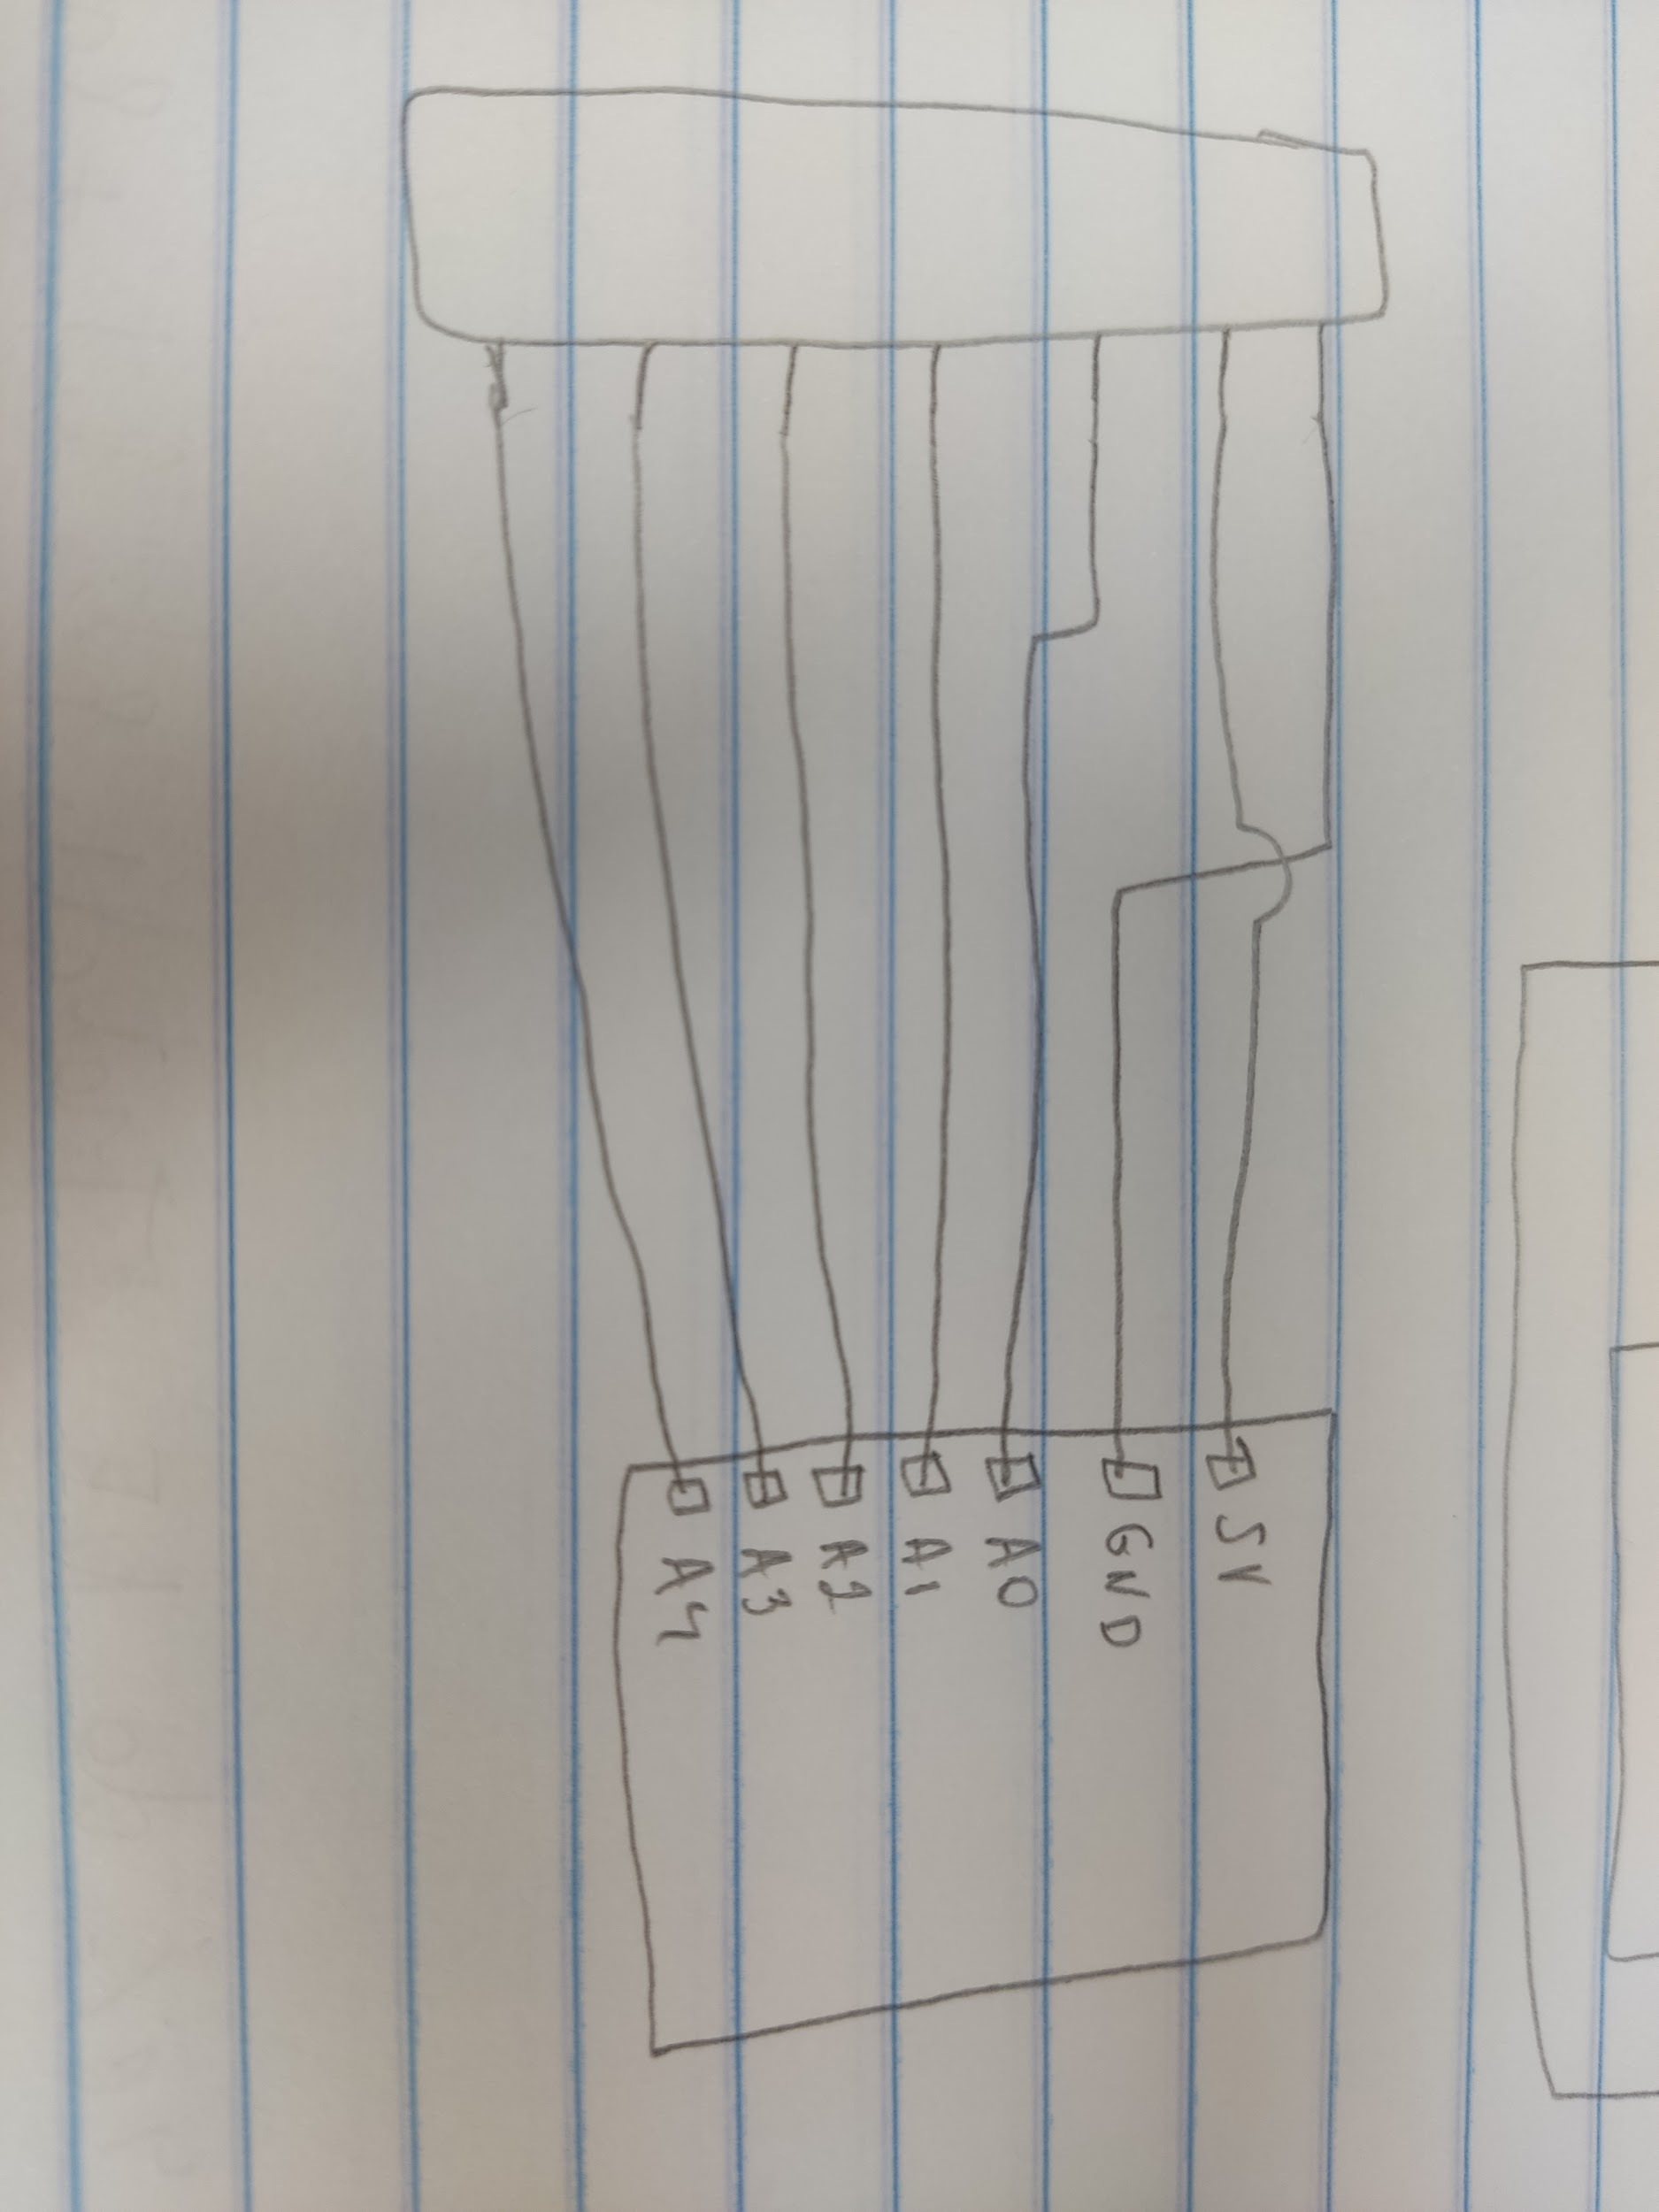 5V
GND
A0
A1
A2
A3
A4